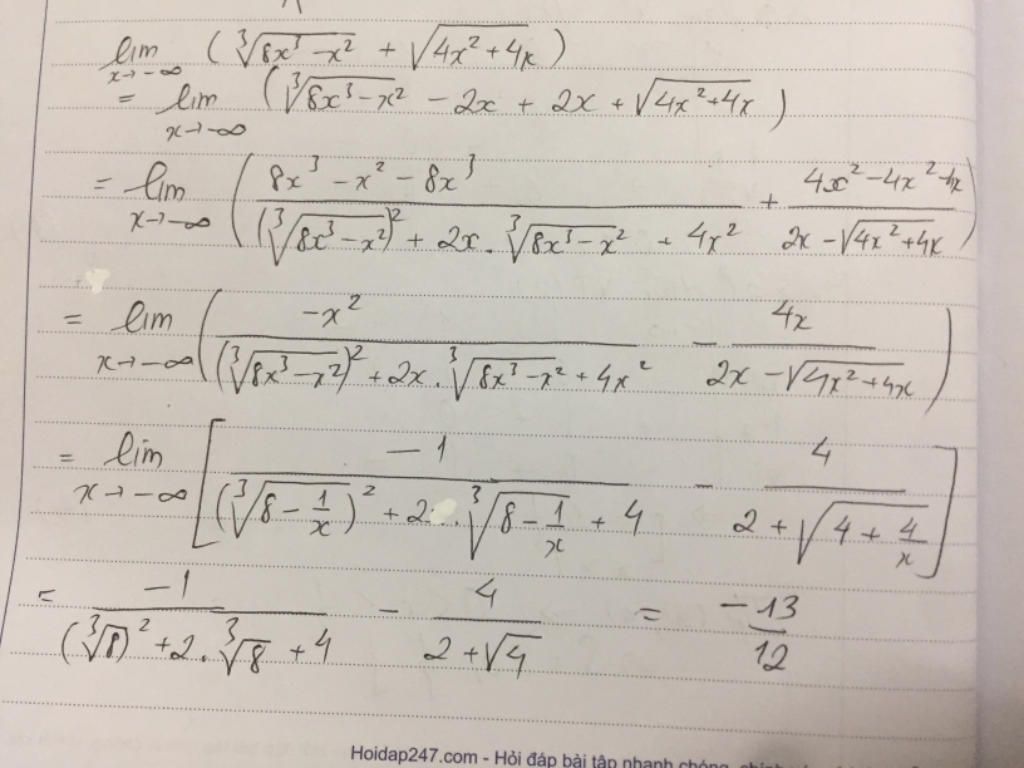 lim x→-∞ (∛(8x³ - x²) + √(4x² + 4x))
= lim x→-∞ (∛(8x³ - x²) - 2x + 2x + √(4x² + 4x))
= lim x→-∞ ((8x³ - x² - 8x³)/((∛(8x³ - x²))² + 2x . ∛(8x³ - x²) + 4x²) + (4x² - 4x² - 4x)/(2x - √(4x² + 4x)))
= lim x→-∞ (-x²/((∛(8x³ - x²))² + 2x . ∛(8x³ - x²) + 4x²) - 4x/(2x - √(4x² + 4x)))
= lim x→-∞ [-1/((∛(8 - 1/x))² + 2 . ∛(8 - 1/x) + 4) - 4/(2 + √(4 + 4/x))]
= -1/((∛8)² + 2 . ∛8 + 4) - 4/(2 + √4) = -13/12
Hoidap247.com - Hỏi đáp bài tập nhanh chóng,